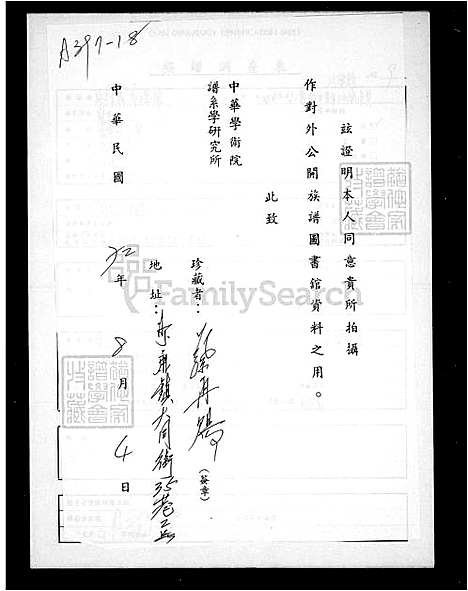 A397-18
茲證明本人同意貴所拍攝
作對外公開族譜圖書館資料之用。
此致
中華學術院
譜系學研究所
珍藏者：蘇再鴻（簽章）
地址：東鎮大同街35巷2号
中華民國 72年 8月 4日
FamilySearch